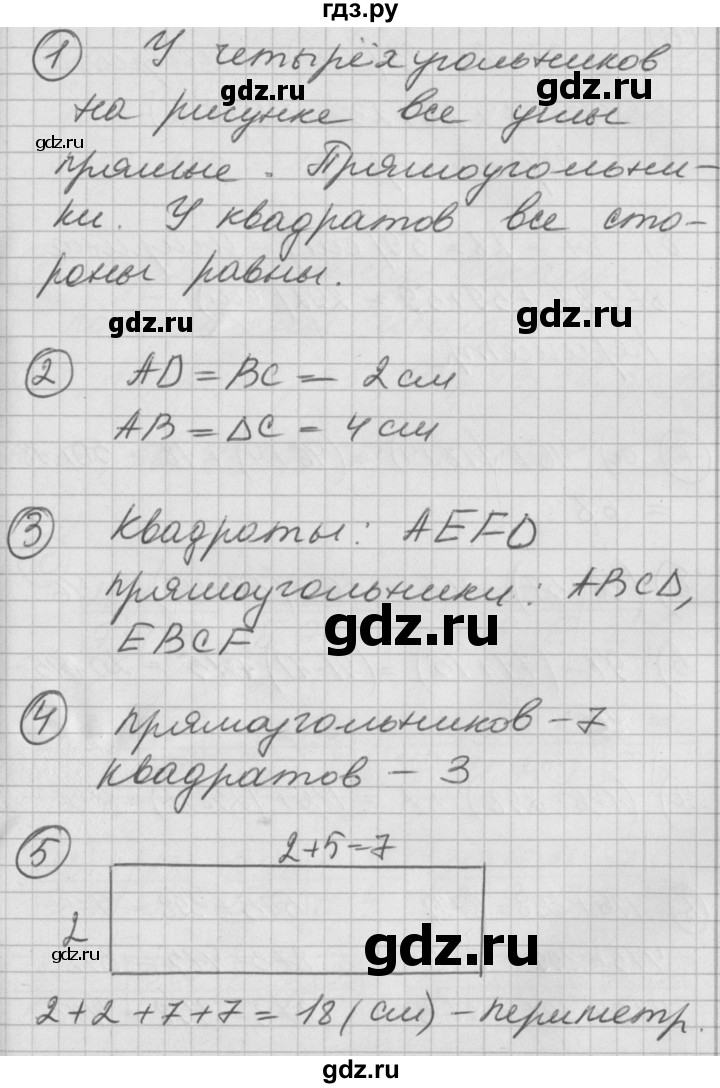 гдз.ру
① У четырёхугольников
на рисунке все углы
прямые. Прямоугольни-
ки. У квадратов все сто-
роны равны.
② AD = BC = 2 см
AB = DC = 4 см
③ Квадраты: AEFD
прямоугольники: ABCD,
EBCF
④ прямоугольников – 7
квадратов – 3
⑤ 2+5=7
2
2+2+7+7=18(см) – периметр.
gdz.ru
gdz.ru
gdz.ru
gdz.ru
gdz.ru
gdz.ru
gdz.ru
gdz.ru
gdz.ru
gdz.ru